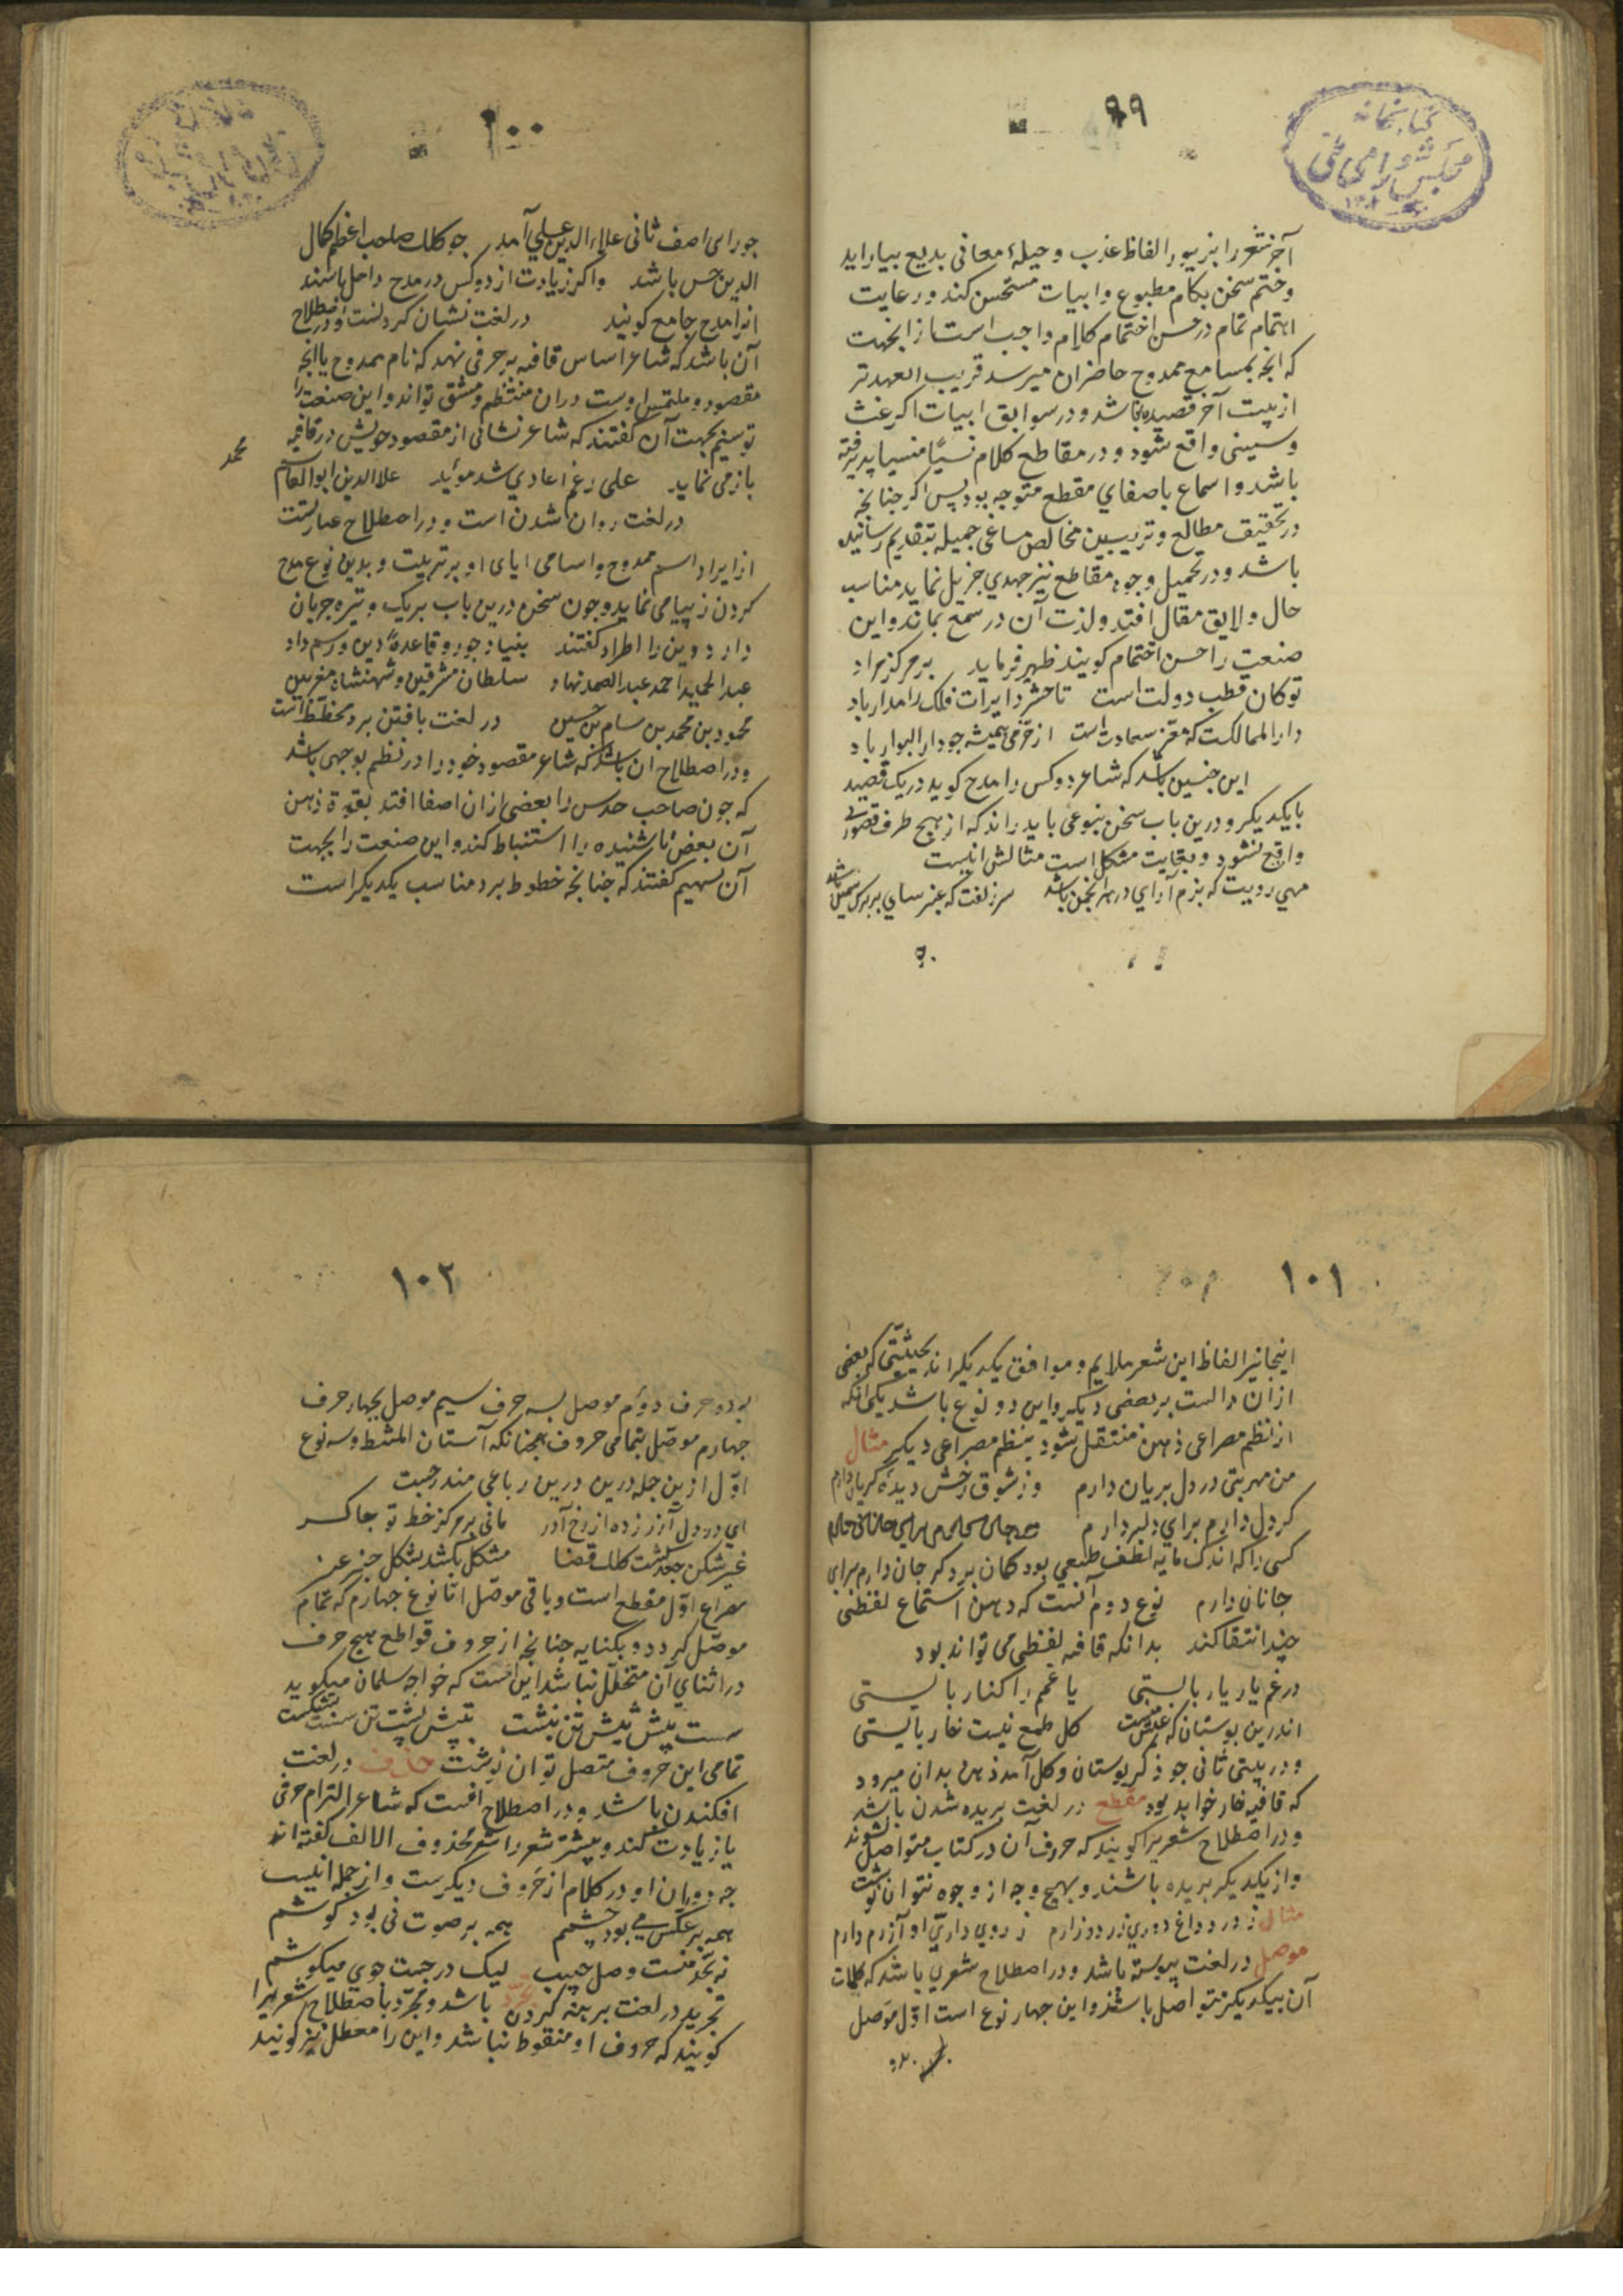 ۹۹
کتابخانه
مجلس شورای ملی
آخر شعر را بزیور الفاظ عذب و حیلهٔ معانی بدیع بیاراید
و ختم سخن بکام مطبوع و ابیات مستحسن کند و رعایت
اهتمام تمام در حسن اختتام کلام واجب است از انجهت
که انجه بمسامع ممدوح حاضران میرسد قریب العهدتر
از بیت آخر قصیده نباشد و در سوابق ابیات اکر غث
و سمینی واقع شود و در مقاطع کلام نسیًا منسیا پذیرفته
باشد و اسماع باصغای مقطع متوجه بود پس اکر جنانجه
در تحقیق مطالع و تزیین مخالص مساعی جمیله بتقدیم رسانیده
باشد و در تحمیل وجوه مقاطع نیز جهدی جزیل نماید مناسب
حال و لایق مقال افتد و لذت آن در سمع بماند و این
صنعت را حسن اختتام کویند ظهیر فرماید بر مرکز مراد
تو کان قطب دولت است تا حشر دایرات فلک را مدار باد
دار الممالکت که مقر سعادت است از خرمی همیشه جو دار البوار باد
این جنسین باشد که شاعر دو کس را مدح کوید در یک قصیده
با یکدیکر و درین باب سخن بنوعی باید راند که از هیج طرف قصوری
واقع نشود و بغایت مشکل است مثالش اینست
مهی رویت که بزم آرای در هر انجمن باشد سر زلفت که عنبر سای بر برک سمن باشد
۱۰۰
جو رای اصف ثانی علاء الدین علی آمد جو کلک صاحب اعظم کمال
الدین حسن باشد و اکر زیادت از دو کس در مدح داخل باشند
انرا مدح جامع کویند در لغت نشان کردنست و در اصطلاح
آن باشد که شاعر اساس قافیه بر حرفی نهد که نام ممدوح یا انجه
مقصود و ملتمس اوست دران منتظم و متسق تواند و این صنعت را
توسیم بجهت آن کفتند که شاعر نشانی از مقصود خویش در قافیه
باز می نماید علی رغم اعادی شد موئید علا الدین ابو القاسم محمد
در لغت روان شدن است و در اصطلاح عبارتست
از ایراد اسم ممدوح و اسامی ابای او بر ترتیب و بدین نوع مدح
کردن زیبا می نماید و جون سخن درین باب بریک وتیره جریان
دارد و این را اطراد کفتند بنیاد جود و قاعدهٔ دین و رسم داد
عبد الحمید احمد عبد الصمد نهاد سلطان مشرقین و شهنشاه مغربین
محمود بن محمد بن سام بن حسین در لغت بافتن برد مخطط است
و در اصطلاح ان باشد که شاعر مقصود خود را در نظم بوجهی باشد
که جون صاحب حدس را بعضی ازان اصغا افتد بقوة ذهن
آن بعض ناشنیده را استنباط کند و این صنعت را بجهت
آن تسهیم کفتند که جنانجه خطوط برد مناسب یکدیکر است
۱۰۱
اینجا نیز الفاظ این شعر ملایم و موافق یکدیکراند بحیثیتی که بعضی
ازان دالست بر بعضی دیکر و این دو نوع باشد یکی انکه
از نظم مصراعی ذهن منتقل شود بنظم مصراعی دیکر مثال
من مهر بتی در دل بریان دارم وز شوق رخش دیدهٔ کریان دارم
کر دل دارم برای دلبر دارم
کسی را که اندک مایه لطف طبعی بود کمان برد که جان دارم برای
جانان دارم نوع دوم آنست که ذهن از استماع لفظی
چند انتقا کند بدانکه قافیه لفظی می تواند بود
در غم یار یار بایستی یا غمم را کنار بایستی
اندرین بوستان که عیش منست کل طمع نیست خار بایستی
و در بیتی ثانی جو ذکر بوستان و کل آمد ذهن بدان میرود
که قافیه خار خواهد بود مقطع در لغت بریده شدن باشد
و در اصطلاح شعریرا کویند که حروف آن در کتاب متواصل نشوند
و از یکدیکر بریده باشند و بهیج وجه از وجوه نتوان نوشت
مثال ز درد و داغ دوری زر دوزارم ز روی داریّ او آزرم دارم
موصل در لغت پیوسته باشد و در اصطلاح شعری باشد که کلمات
آن بیکدیکر متواصل باشند و این جهار نوع است اوّل موصل
۱۰۲
بدو حرف دوّم موصل بسه حرف سیم موصل بجهار حرف
جهارم موصّل بتمامی حروف همجنانکه آستان المشط و سه نوع
اوّل ازین جمله درین درین رباعی مندرجست
ای درد دل آزر زده از رخ آذر مانی بر مرکز خط تو جاکر
مشکل بکشد بشکل جز عنبر
مصراع اوّل مقطع است و باقی موصّل امّا نوع جهارم که تمام
موصّل کردد و بکنایه جنانجه از حروف قواطع هیج حرف
در اثنای آن متخلّل نباشد اینست که خواجه سلمان میکوید
تمامی این حروف متصل توان نوشت حذف در لغت
افکندن باشد و در اصطلاح انست که شاعر التزام حرفی
یا زیادت کند و بیشتر شعرا شعر محذوف الالف کفته اند
جه دوران او در کلام از حروف دیکرست و از جمله اینست
همه بر عکس می بود چشمم همه بر صوت نی بود کوشم
نه بحد منست وصل حبیب لیک در جست جوی میکوشم
تجرید در لغت برهنه کردن باشد و مجرّد باصطلاح شعریرا
کویند که حروف او منقوط نباشد و این را معطل نیز کویند